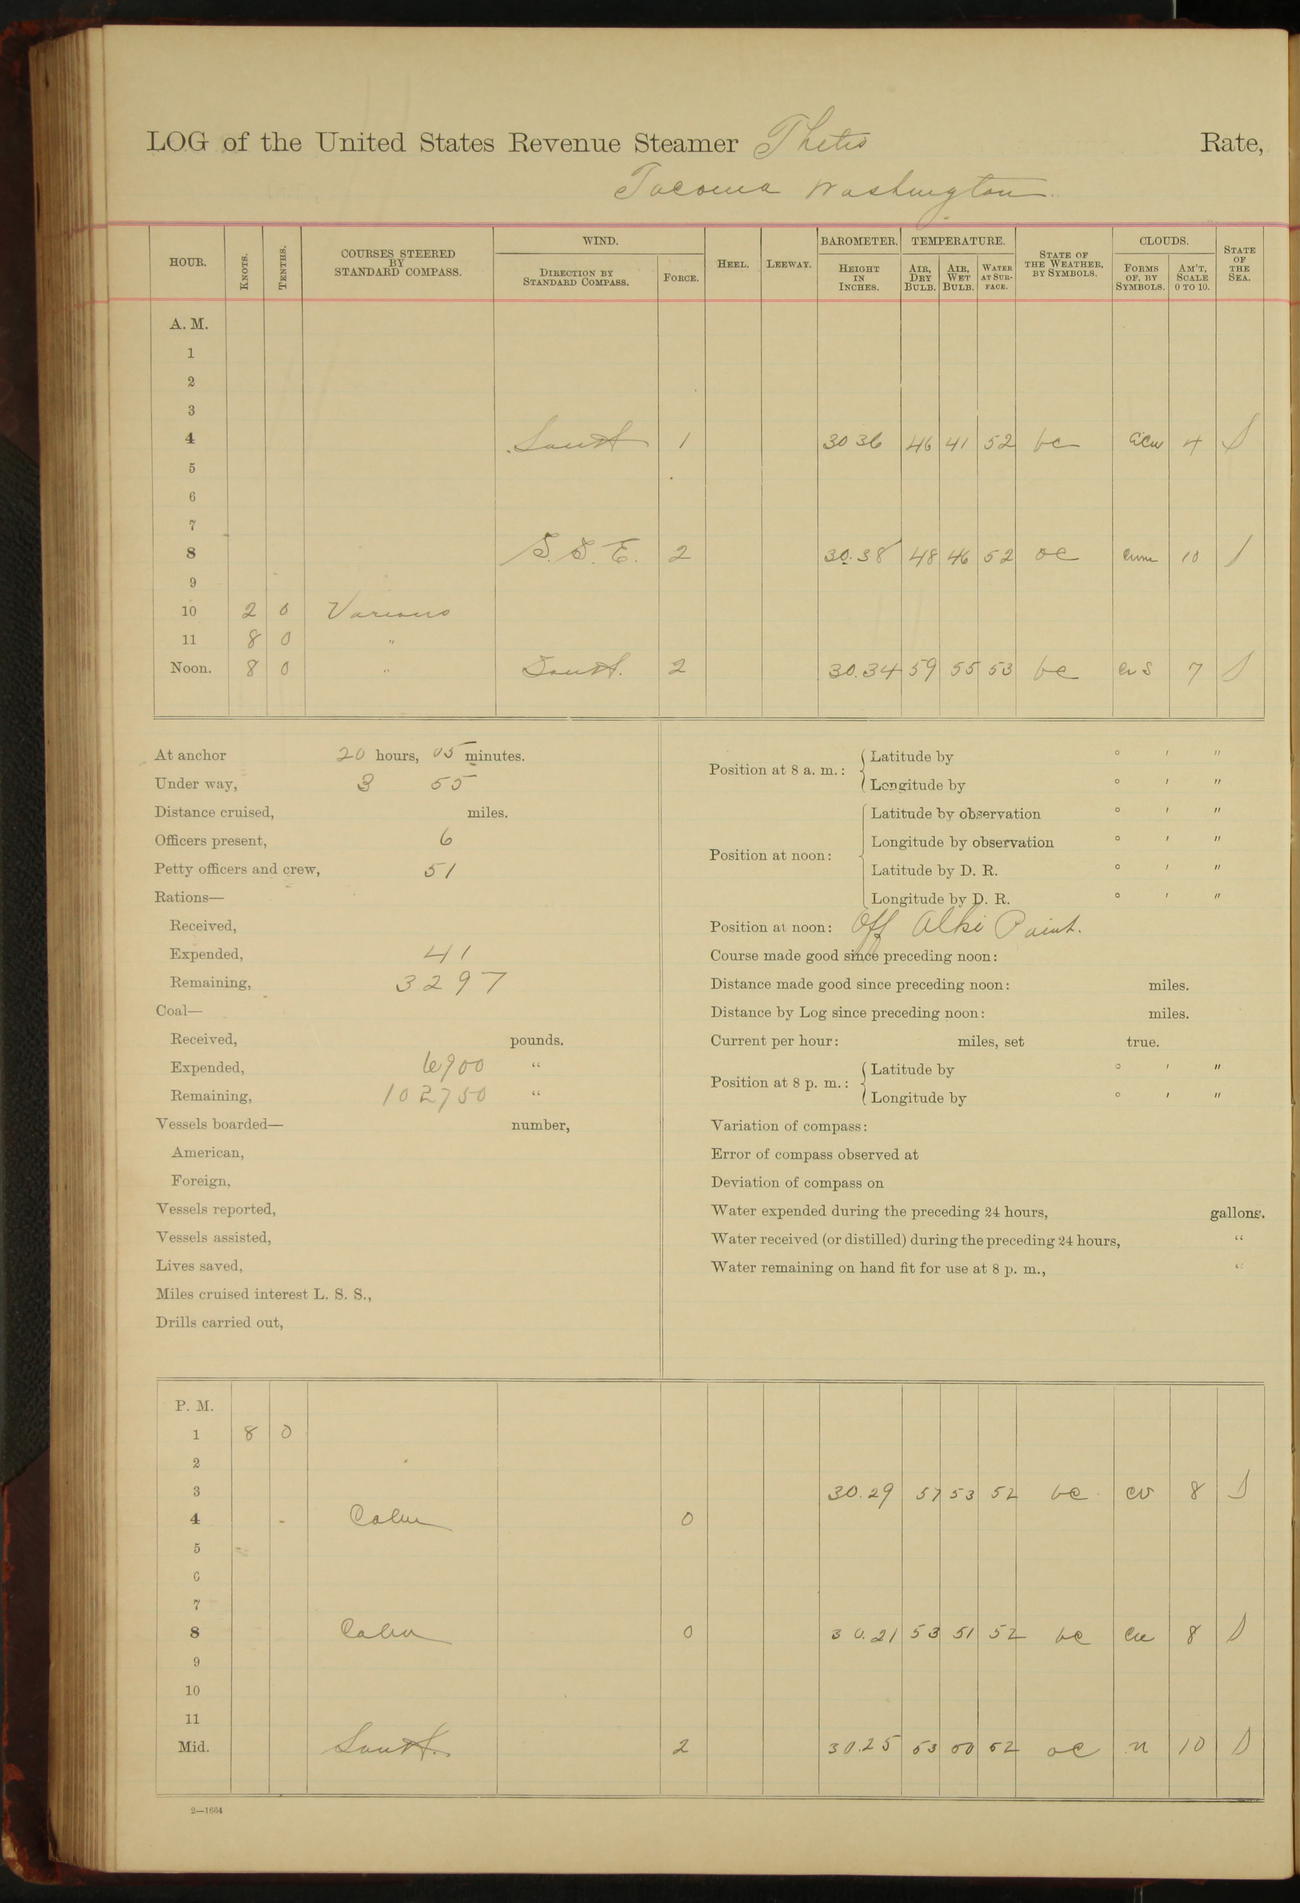 LOG of the United States Revenue Steamer Thetis Rate,
Tacoma Washington.
HOUR. KNOTS. TENTHS. COURSES STEERED BY STANDARD COMPASS. WIND. DIRECTION BY STANDARD COMPASS. FORCE. HEEL. LEEWAY. BAROMETER. HEIGHT IN INCHES. TEMPERATURE. AIR, DRY BULB. AIR, WET BULB. WATER AT SURFACE. STATE OF THE WEATHER, BY SYMBOLS. CLOUDS. FORMS OF, BY SYMBOLS. AM'T, SCALE 0 TO 10. STATE OF THE SEA.
A. M.
1
2
3
4 South 1 30 36 46 41 52 bc 4 S
5
6
7
8 S. S. E. 2 30.38 48 46 52 oc cum 10 S
9
10 2 0 Various
11 8 0 "
Noon. 8 0 " South. 2 30.34 59 55 53 bc 7 S
At anchor 20 hours, 05 minutes.
Under way, 3 55
Distance cruised, miles.
Officers present, 6
Petty officers and crew, 51
Rations—
Received,
Expended, 41
Remaining, 3297
Coal—
Received, pounds.
Expended, 6900 "
Remaining, 102750 "
Vessels boarded— number,
American,
Foreign,
Vessels reported,
Vessels assisted,
Lives saved,
Miles cruised interest L. S. S.,
Drills carried out,
Position at 8 a. m.: Latitude by ° ' "
Longitude by ° ' "
Position at noon: Latitude by observation ° ' "
Longitude by observation ° ' "
Latitude by D. R. ° ' "
Longitude by D. R. ° ' "
Position at noon: Off Alki Point.
Course made good since preceding noon:
Distance made good since preceding noon: miles.
Distance by Log since preceding noon: miles.
Current per hour: miles, set true.
Position at 8 p. m.: Latitude by ° ' "
Longitude by ° ' "
Variation of compass:
Error of compass observed at
Deviation of compass on
Water expended during the preceding 24 hours, gallons.
Water received (or distilled) during the preceding 24 hours, "
Water remaining on hand fit for use at 8 p. m., "
P. M.
1 8 0
2
3 30.29 57 53 52 bc cu 8 S
4 Calm 0
5
6
7
8 Calm 0 30.21 53 51 52 bc cu 8 S
9
10
11
Mid. South. 2 30.25 53 50 52 oc n 10 S
2—1664